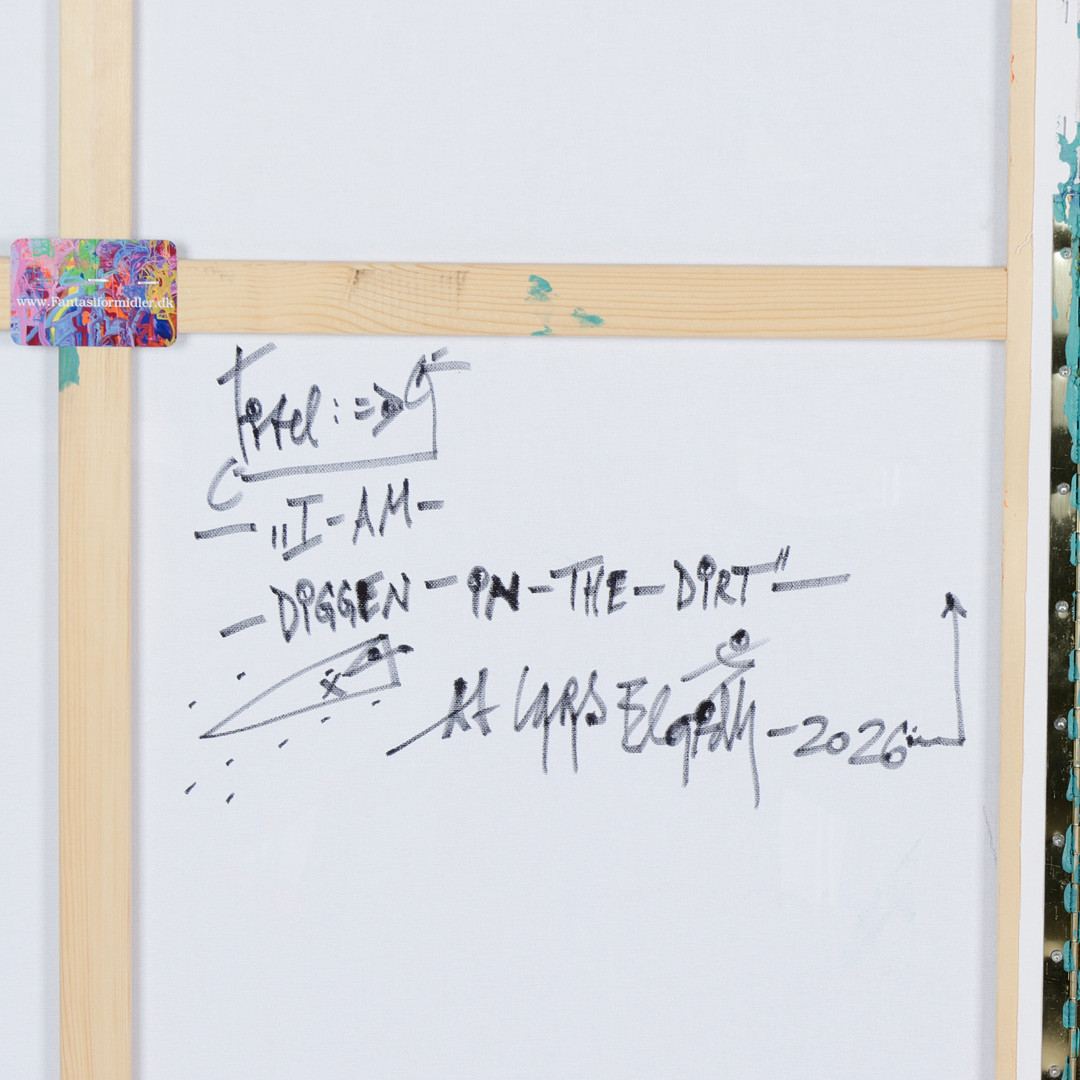 www.Fantasiformidler.dk
Titel: =>
- „I-AM-
- DIGGEN - IN - THE - DIRT" -
Af Lars Elgidh - 2026